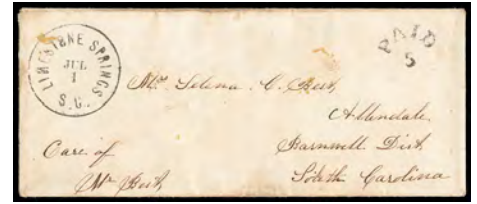 LIMESTONE SPRINGS
JUL
1
S.C.
PAID
5
Mrs. Selena C. Best,
Allendale
Barnwell Dist
South Carolina
Care of
Mr Best,